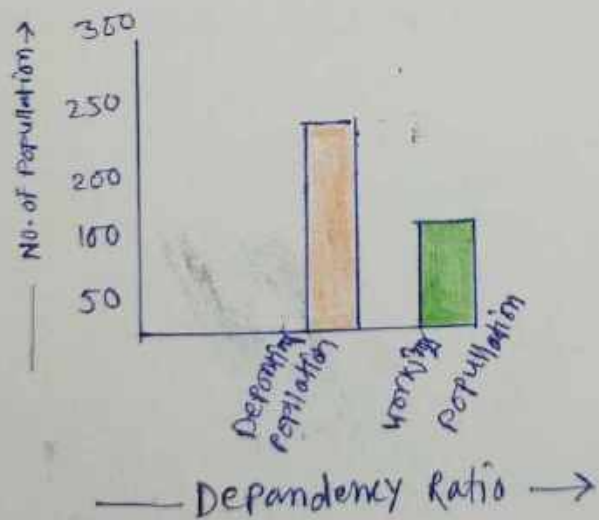 No. of Popullation →
300
250
200
100
50
Popullation
Working
Popullation
Depandency Ratio →